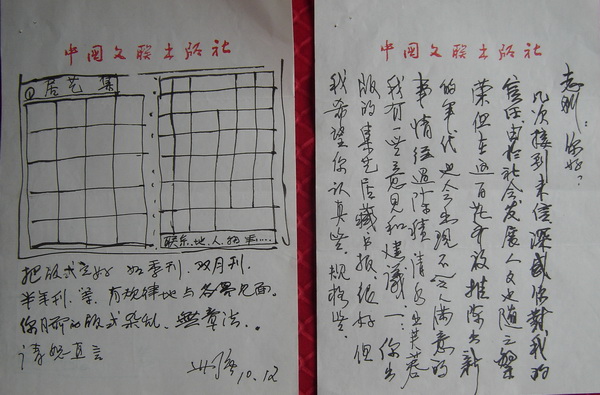 中国文联出版社
志刚: 你好?
几次接到来信深感你对我的
信任。由于社会发展人文也随之繁
荣但在这百花齐放推陈出新
的年代也会出现不令人满意的
事情经过陈积清如出芙蓉
我有一些意见和建议:一、你出
版的集艺居藏书报很好但
我希望你认真些。规格些。
中国文联出版社
①居艺集
联系、地、人、
把版式定好 如季刊、双月刊.
半年刊、等、有规律地与各界见面.
你目前的版式杂乱、无章法..
请恕直言
10.12